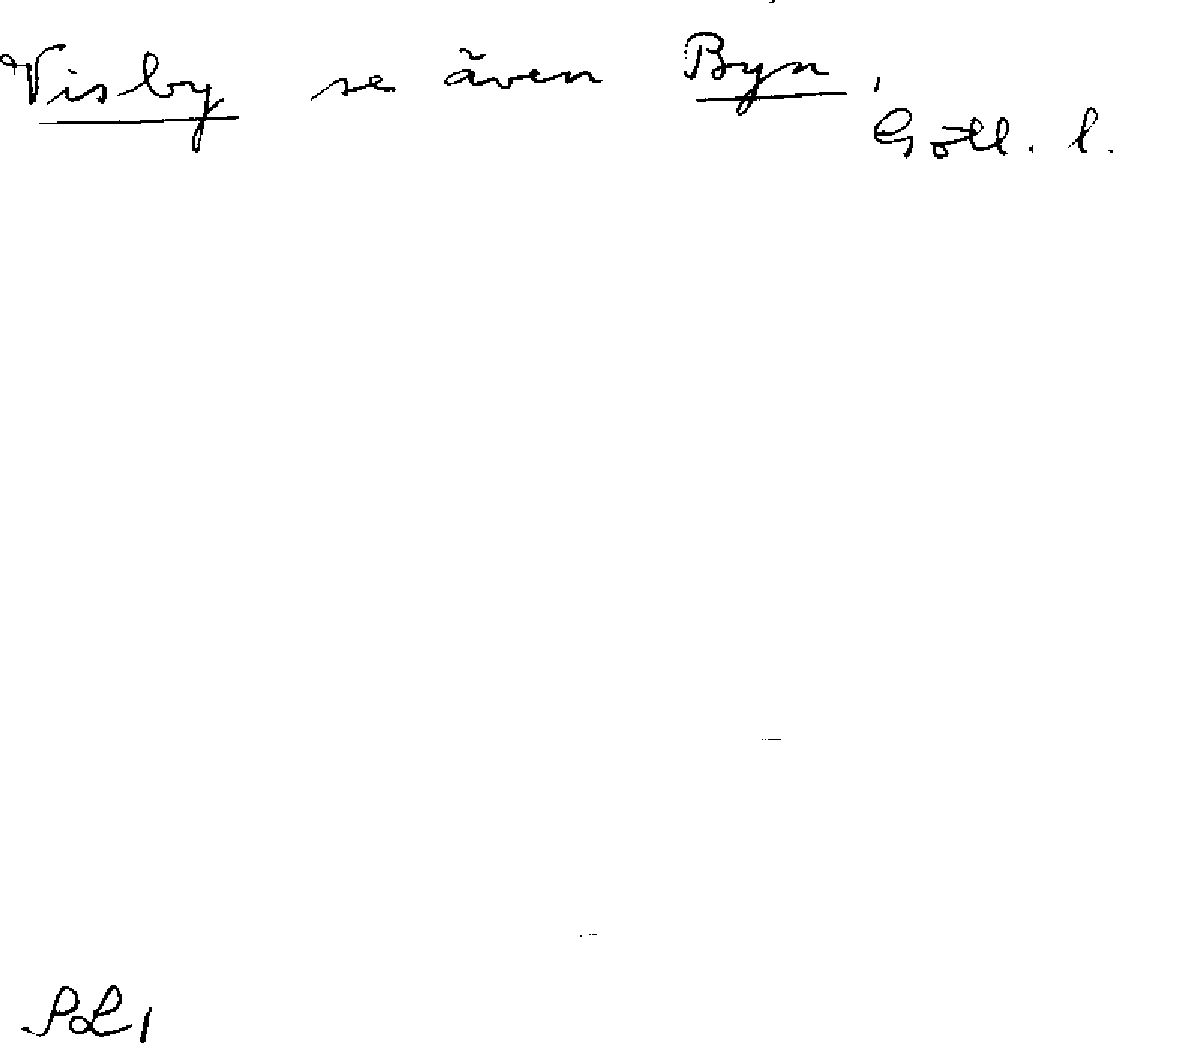 Visby se även Byn,
Gotl. l.